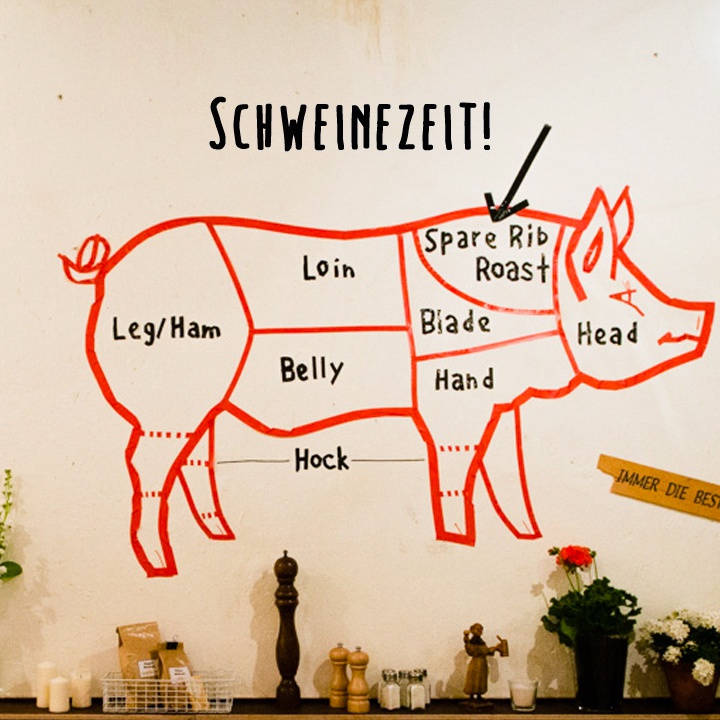 SCHWEINEZEIT!
Spare Rib
Roast
Loin
Leg/Ham
Blade
Head
Belly
Hand
Hock
IMMER DIE